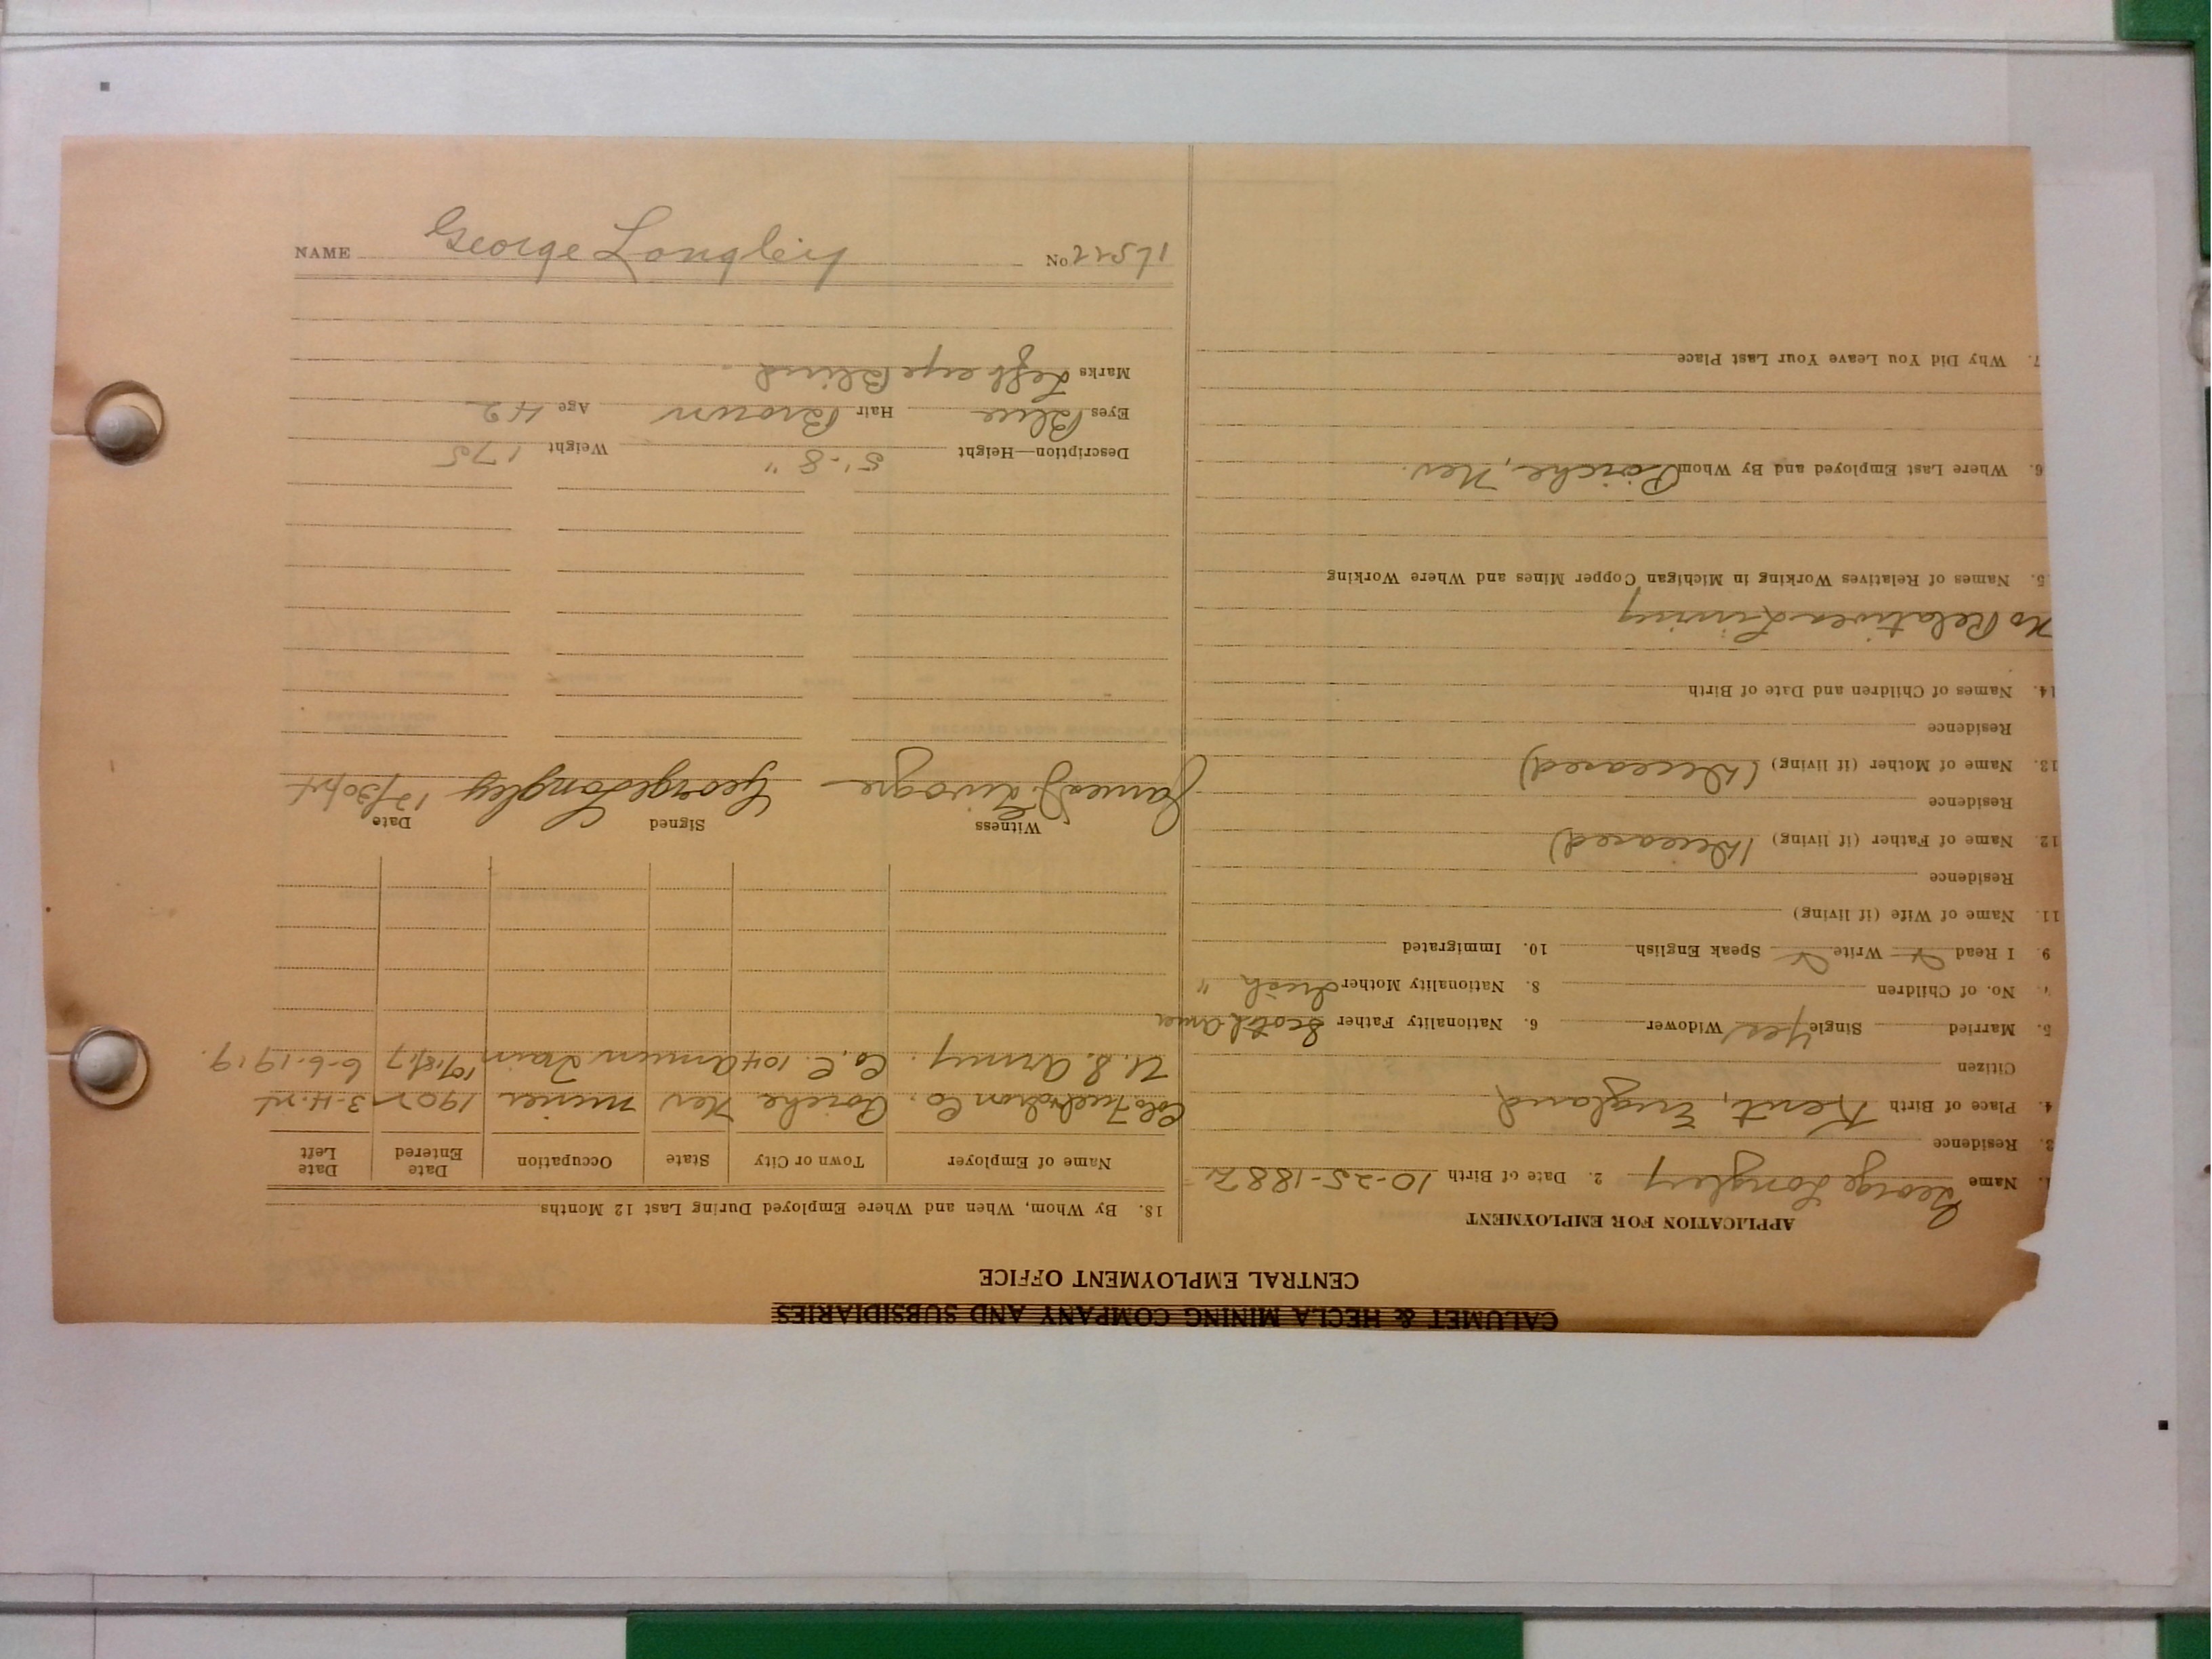 CALUMET & HECLA MINING COMPANY AND SUBSIDIARIES
CENTRAL EMPLOYMENT OFFICE
APPLICATION FOR EMPLOYMENT
1. Name George Longley 2. Date of Birth 10-25-1882
3. Residence
4. Place of Birth Kent, England
Citizen
5. Married Single Yes Widower 6. Nationality Father Scotch Amer
7. No. of Children 8. Nationality Mother Irish "
9. I Read Write Speak English 10. Immigrated
11. Name of Wife (if living)
Residence
12. Name of Father (if living) (Deceased)
Residence
13. Name of Mother (if living) (Deceased)
Residence
14. Names of Children and Date of Birth
No Relatives Living
15. Names of Relatives Working in Michigan Copper Mines and Where Working
16. Where Last Employed and By Whom Pioche, Nev.
17. Why Did You Leave Your Last Place
18. By Whom, When and Where Employed During Last 12 Months
Name of Employer Town or City State Occupation Date Entered Date Left
Colo Fuel & Iron Co. Pioche Nev miner 190
U. S. Army. Co. C. 104 Ammun Train 10/18/17 6-6-1919.
Witness Signed Date
James J. George Longley 12/30/24
Description—Height 5'-8" Weight 175
Eyes Blue Hair Brown Age 42
Marks Left eye Blind
NAME George Longley No 22591